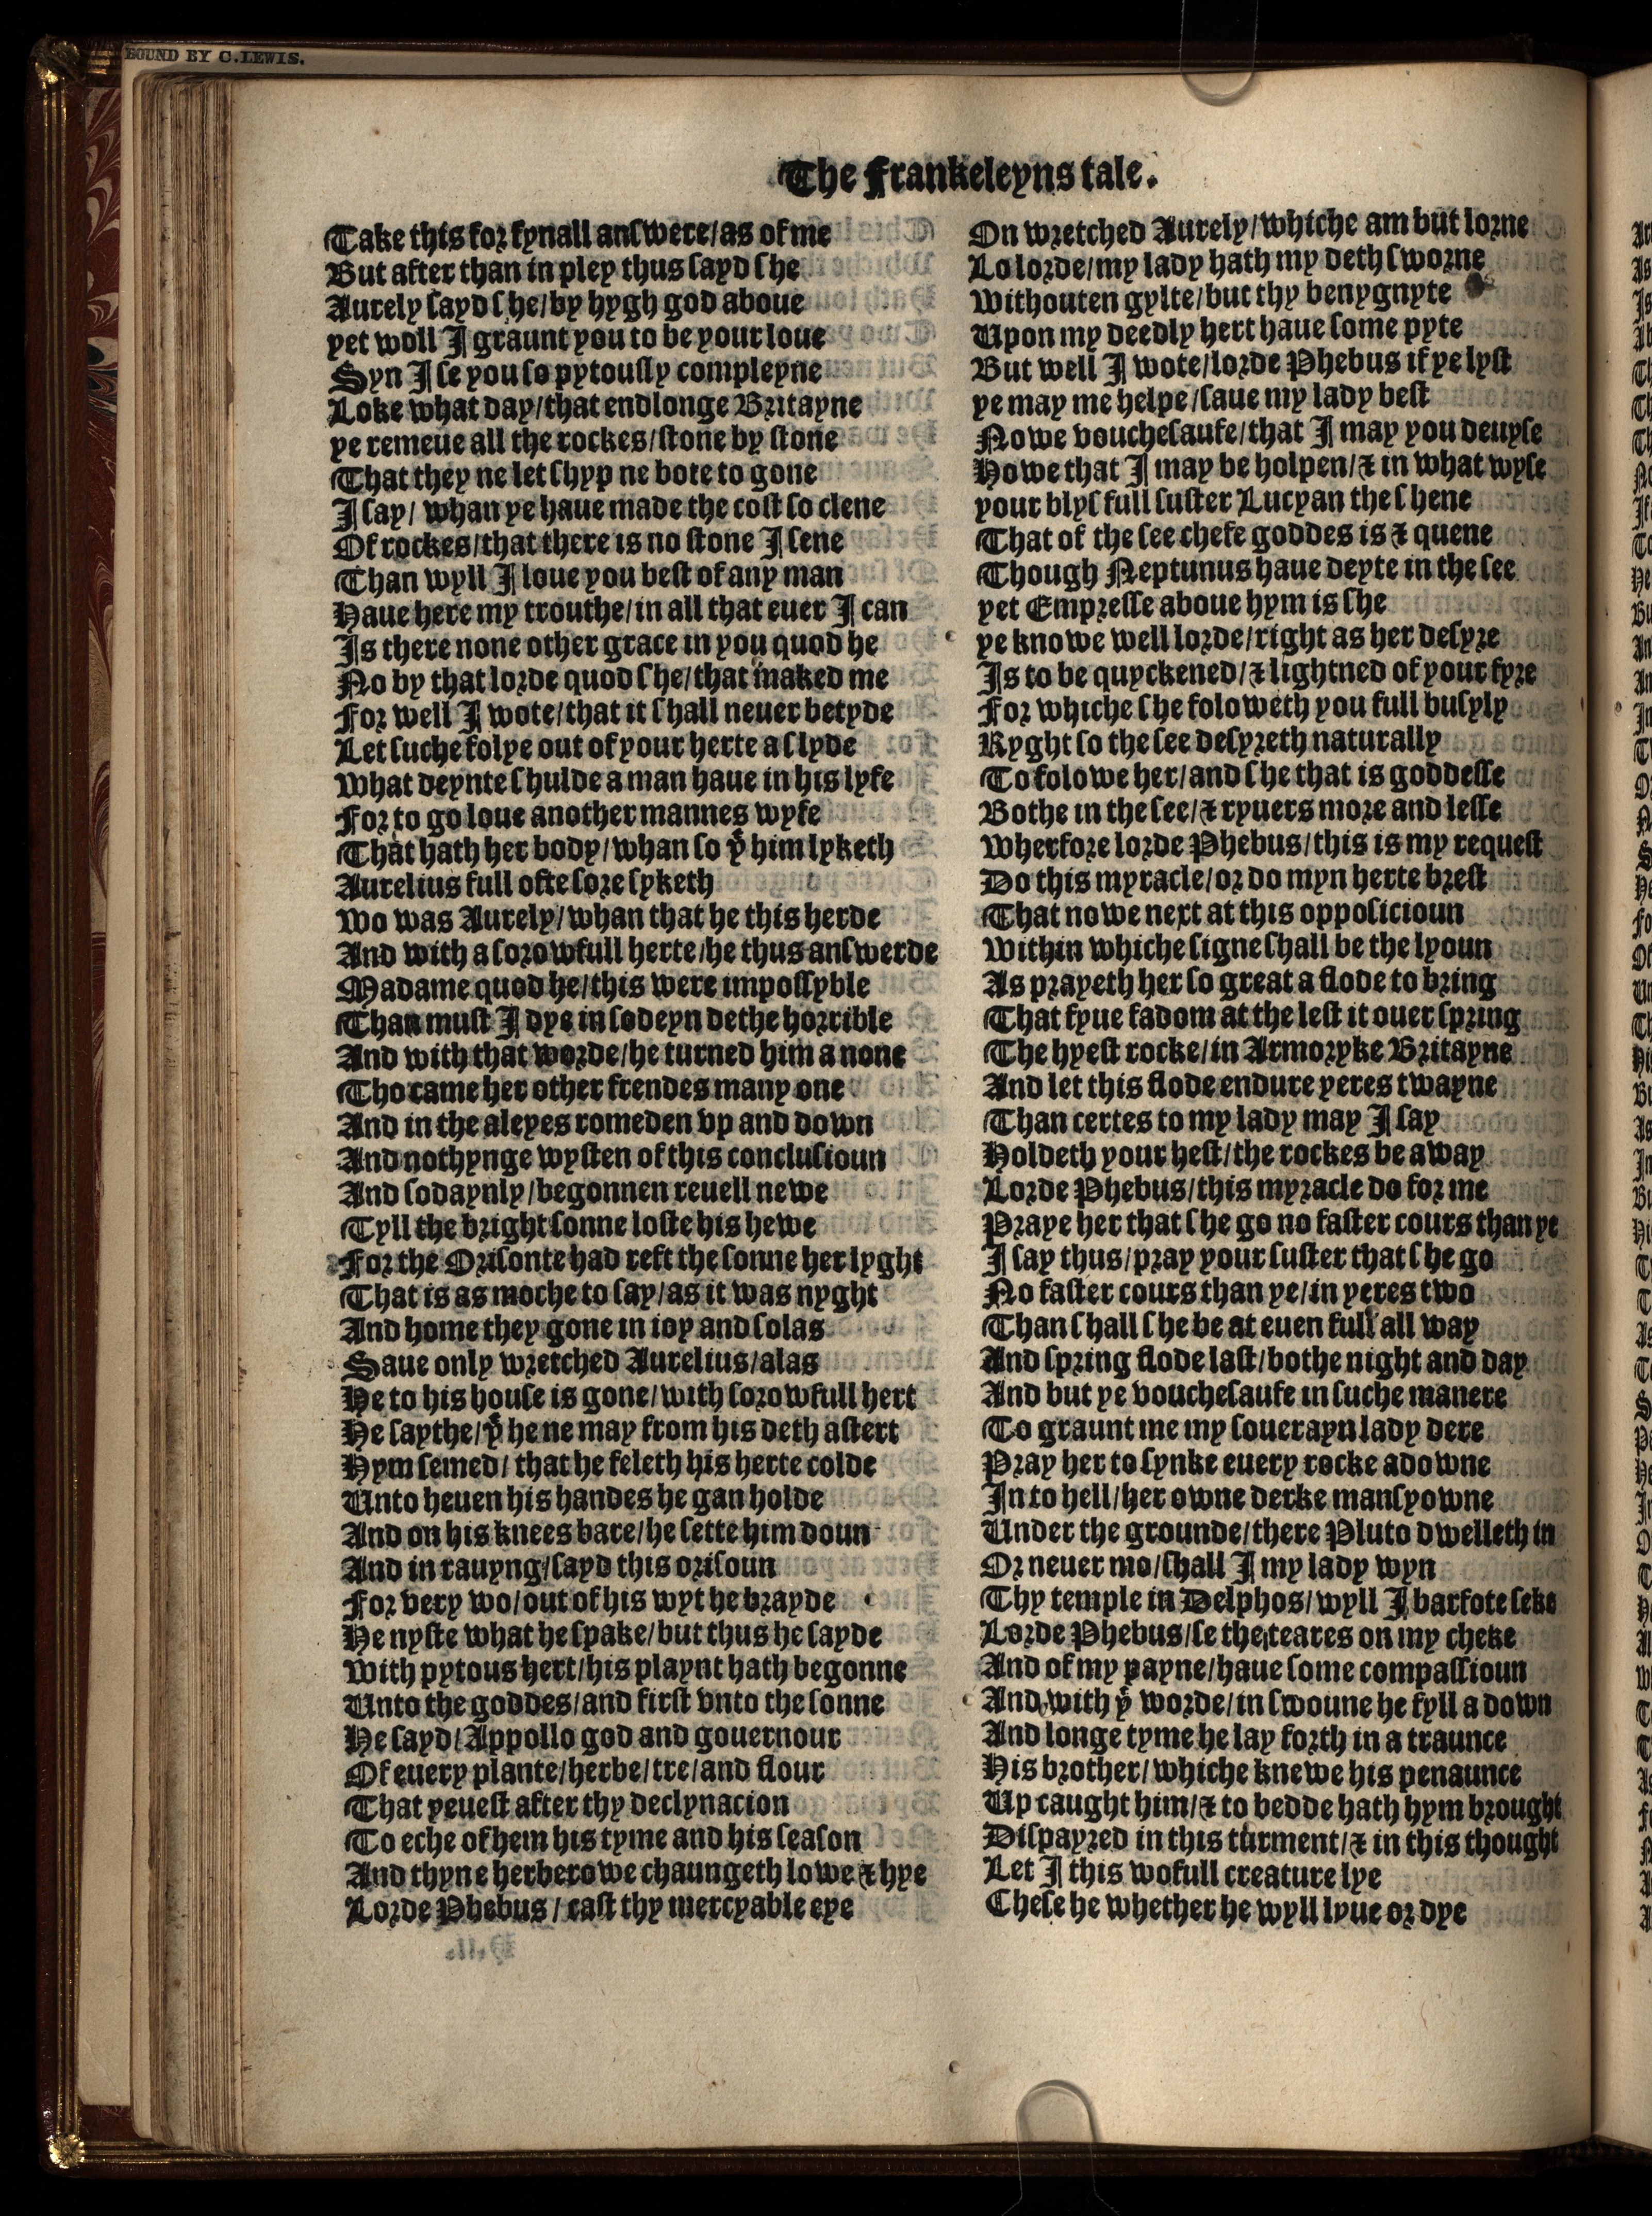 BOUND BY C.LEWIS.
The Frankeleyns tale.
Take this for fynall answere/as of me
But after than in pley thus sayd she
Aurely sayd she/by hygh god aboue
yet woll I graunt you to be your loue
Syn I se you so pytously compleyne
Loke what day/that endlonge Britayne
ye remeue all the rockes/stone by stone
That they ne let shyp ne bote to gone
I say/ whan ye haue made the cost so clene
Of rockes/that there is no stone I sene
Than wyll I loue you best of any man
Haue here my trouthe/in all that euer I can
Is there none other grace in you quod he
No by that lorde quod she/that maked me
For well I wote/that it shall neuer betyde
Let suche folye out of your herte a slyde
What deynte shulde a man haue in his lyfe
For to go loue another mannes wyfe
That hath her body/whan so yͭ him lyketh
Aurelius full ofte sore syketh
Wo was Aurely/whan that he this herde
And with a sorowfull herte/he thus answerde
Madame quod he/this were impossyble
Than must I dye in sodeyn dethe horrible
And with that worde/he turned him a none
Tho came her other frendes many one
And in the aleyes romeden vp and down
And nothynge wysten of this conclusioun
And sodaynly/begonnen reuell newe
Tyll the bright sonne loste his hewe
For the Orisonte had reft the sonne her lyght
That is as moche to say/as it was nyght
And home they gone in ioy and solas
Saue only wretched Aurelius/alas
He to his house is gone/with sorowfull hert
He saythe/yͭ he ne may from his deth astert
Hym semed/ that he feleth his herte colde
Unto heuen his handes he gan holde
And on his knees bare/he sette him doun
And in rauyng/sayd this orisoun
For very wo/out of his wyt he brayde
He nyste what he spake/but thus he sayde
With pytous hert/his playnt hath begonne
Unto the goddes/and first vnto the sonne
He sayd/Appollo god and gouernour
Of euery plante/herbe/tre/and flour
That yeuest after thy declynacion
To eche of hem his tyme and his season
And thyne herberowe chaungeth lowe & hye
Lorde Phebus / cast thy mercyable eye
On wretched Aurely/whiche am but lorne
Lo lorde/my lady hath my deth sworne
Withouten gylte/but thy benygnyte
Upon my deedly hert haue some pyte
But well I wote/lorde Phebus if ye lyst
ye may me helpe/saue my lady best
Nowe vouchesaufe/that I may you deuyse
Howe that I may be holpen/& in what wyse
your blysfull suster Lucyan the shene
That of the see chefe goddes is & quene
Though Neptunus haue deyte in the see
yet Empresse aboue hym is she
ye knowe well lorde/right as her desyre
Is to be quyckened/& lightned of your fyre
For whiche she foloweth you full busyly
Ryght so the see desyreth naturally
To folowe her/and she that is goddesse
Bothe in the see/& ryuers more and lesse
Wherfore lorde Phebus/this is my request
Do this myracle/or do myn herte brest
That nowe next at this opposicioun
Within whiche signe shall be the lyoun
As prayeth her so great a flode to bring
That fyue fadom at the lest it ouer spring
The hyest rocke/in Armoryke Britayne
And let this flode endure yeres twayne
Than certes to my lady may I say
Holdeth your hest/the rockes be away
Lorde Phebus/this myracle do for me
Praye her that she go no faster cours than ye
I say thus/pray your suster that she go
No faster cours than ye/in yeres two
Than shall she be at euen full all way
And spring flode last/bothe night and day
And but ye vouchesaufe in suche manere
To graunt me my souerayn lady dere
Pray her to synke euery rocke adowne
In to hell/her owne derke mansyowne
Under the grounde/there Pluto dwelleth in
Or neuer mo/shall I my lady wyn
Thy temple in Delphos/wyll I barfote seke
Lorde Phebus/se the teares on my cheke
And of my payne/haue some compassioun
And with yͭ worde/in swoune he fyll a down
And longe tyme he lay forth in a traunce
His brother/whiche knewe his penaunce
Up caught him/& to bedde hath hym brought
Dispayred in this turment/& in this thought
Let I this wofull creature lye
Chese he whether he wyll lyue or dye